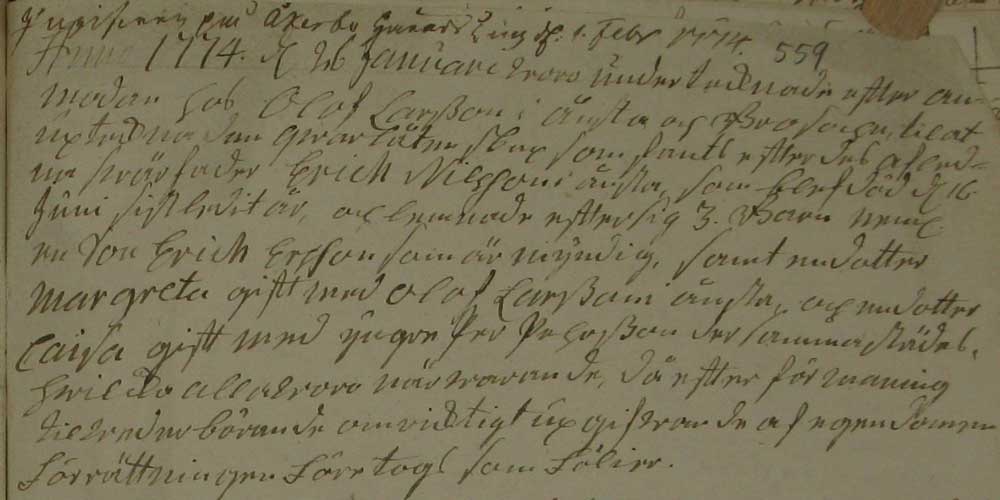 Åkerby Härads Ting d. 1. Febr 1774.
559
Anno 1774. d 26 Januari woro undertecknade efter an-
modan hos Olof Larsson i änsta och Bro sochn, til at
upteckna den qvarlåtenskap som fants efter des afled-
na swärfader Erich Nilsson i änsta, som blef död d 16
Juni sistledit är, och lemnade efter sig 3. Barn neml
en Son Erich Ersson som är myndig, samt en dotter
Margreta gift med Olof Larsson i änsta, och en dotter
Caisa gift med yngre Per Persson der sammastädes,
hwilcka alla woro närwarande, då efter förmaning
til wederbörande om ricktigt upgifwande af egendomen
Förrättningen Företogs som Följer.